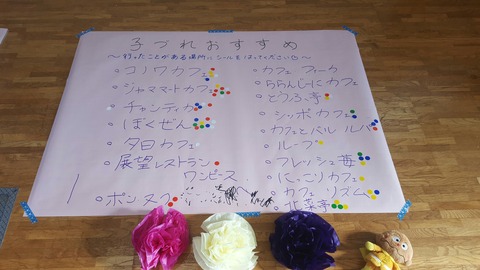 子づれおすすめ
〜行ったことがある場所にシールをはってください〜
コノワカフェ
ジャママートカフェ
チャンティカ
ぼくぜん
夕日カフェ
展望レストラン
ワンピース
ボンヌフ
カフェ フィーカ
ららんじーにカフェ
とうふっ亭
シッポカフェ
カフェとバル ルハ
ループ
フレッシュ苺
にっこりカフェ
カフェ リズム
北菜亭